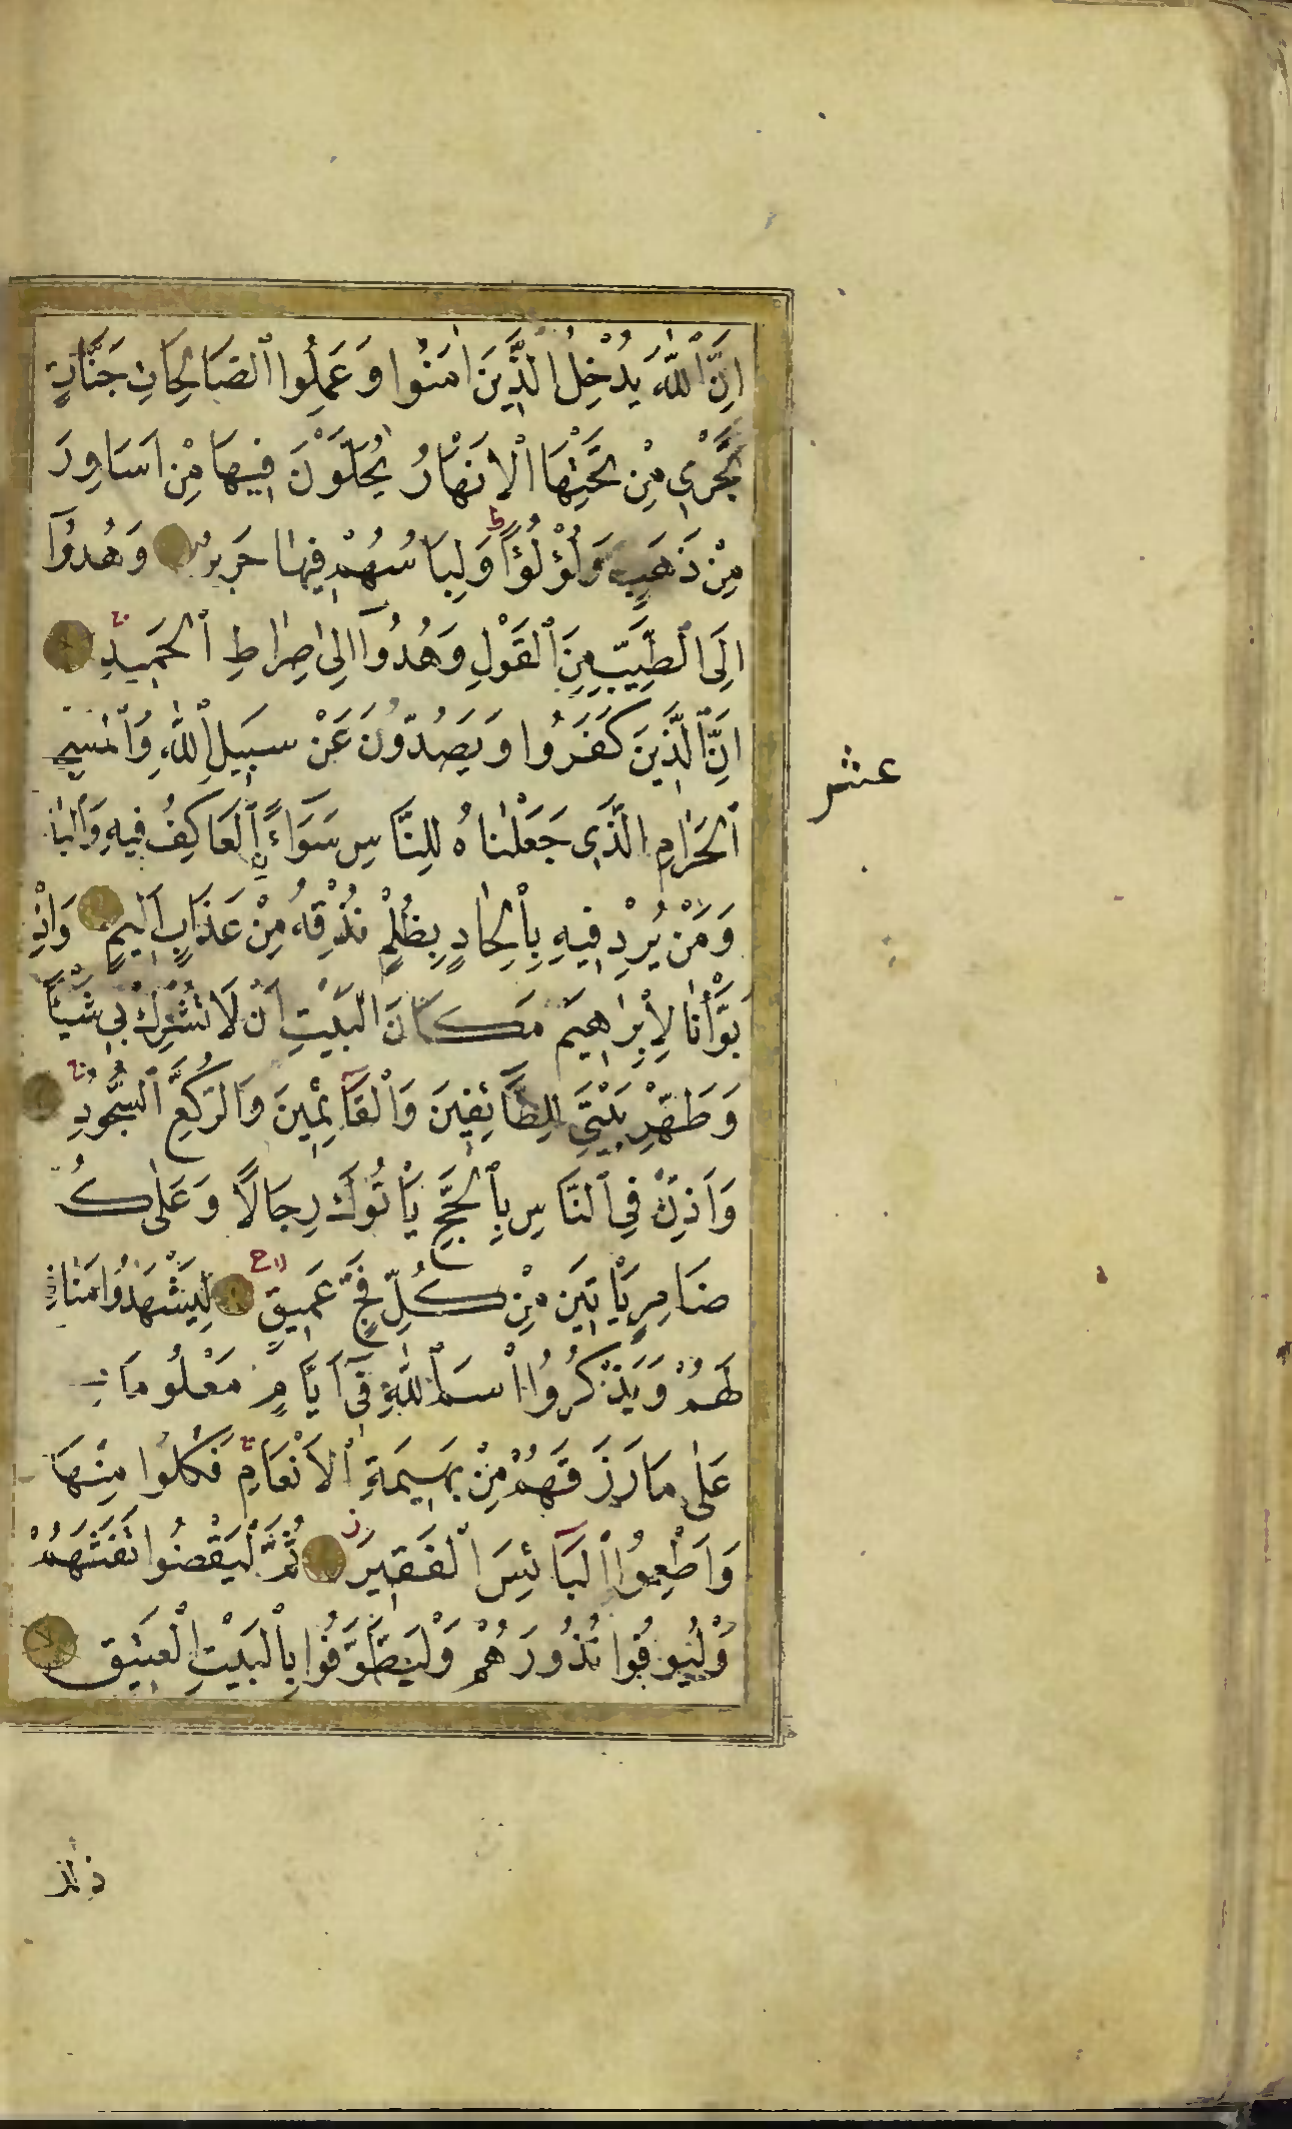 اِنَّ ٱللّٰهَ يُدْخِلُ ٱلَّذِينَ اٰمَنُوا وَعَمِلُوا ٱلصَّالِحَاتِ جَنَّاتٍ
تَجْرِي مِنْ تَحْتِهَا ٱلْاَنْهَارُ يُحَلَّوْنَ فِيهَا مِنْ اَسَاوِرَ
مِنْ ذَهَبٍ وَلُؤْلُؤًا ط وَلِبَاسُهُمْ فِيهَا حَرِيرٌ وَهُدُوٓا
اِلَى ٱلطَّيِّبِ مِنَ ٱلْقَوْلِ وَهُدُوٓا اِلٰى صِرَاطِ ٱلْحَمِيدِ
اِنَّ ٱلَّذِينَ كَفَرُوا وَيَصُدُّونَ عَنْ سَبِيلِ ٱللّٰهِ وَٱلْمَسْجِ
ٱلْحَرَامِ ٱلَّذِي جَعَلْنَاهُ لِلنَّاسِ سَوَآءً ٱلْعَاكِفُ فِيهِ وَٱلْبَا
وَمَنْ يُرِدْ فِيهِ بِاِلْحَادٍ بِظُلْمٍ نُذِقْهُ مِنْ عَذَابٍ اَلِيمٍ وَاِذْ
بَوَّأْنَا لِاِبْرٰاهِيمَ مَكَانَ ٱلْبَيْتِ اَنْ لَا تُشْرِكْ بِي شَيْئًا
وَطَهِّرْ بَيْتِيَ لِلطَّآئِفِينَ وَٱلْقَآئِمِينَ وَٱلرُّكَّعِ ٱلسُّجُودِ
وَاَذِّنْ فِي ٱلنَّاسِ بِٱلْحَجِّ يَأْتُوكَ رِجَالًا وَعَلٰى كُ
ضَامِرٍ يَأْتِينَ مِنْ كُلِّ فَجٍّ عَمِيقٍ لِيَشْهَدُوا مَنَافِ
لَهُمْ وَيَذْكُرُوا ٱسْمَ ٱللّٰهِ فِيٓ اَيَّامٍ مَعْلُومَاتٍ
عَلٰى مَا رَزَقَهُمْ مِنْ بَهِيمَةِ ٱلْاَنْعَامِ فَكُلُوا مِنْهَا
وَاَطْعِمُوا ٱلْبَآئِسَ ٱلْفَقِيرَ ثُمَّ لْيَقْضُوا تَفَثَهُمْ
وَلْيُوفُوا نُذُورَهُمْ وَلْيَطَّوَّفُوا بِٱلْبَيْتِ ٱلْعَتِيقِ
عشر